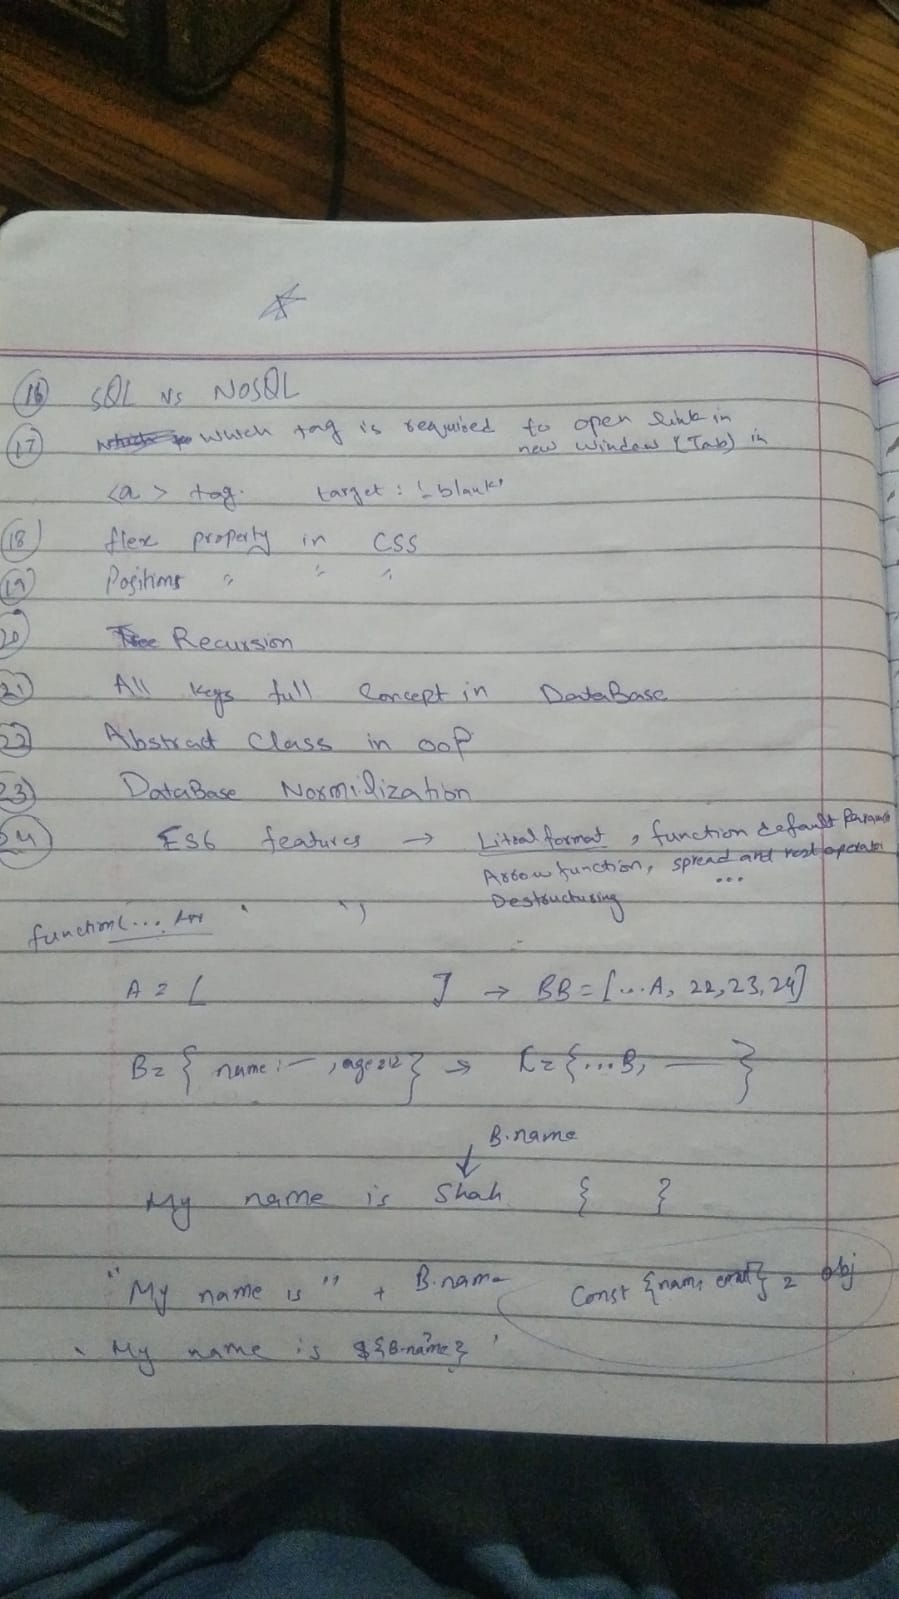 16 SQL vs NOSQL
17 which tag is required to open link in
new window (Tab) in
<a> tag. target : '_blank'
18 flex property in CSS
19 Positions " " "
20 Recursion
21 All keys full Concept in DataBase
22 Abstract Class in OOP
23 DataBase Normilization
24 ES6 features → Literal format, function default Params
Arrow function, spread and rest operator
...
Destructuring
function(...
A = [ ] → BB = [...A, 22, 23, 24]
B = { name : — , age : 22 } → C = {...B, — }
B.name
↓
My name is Shah { }
"My name is" + B.name
Const {name, email} = obj
` My name is ${B.name} `